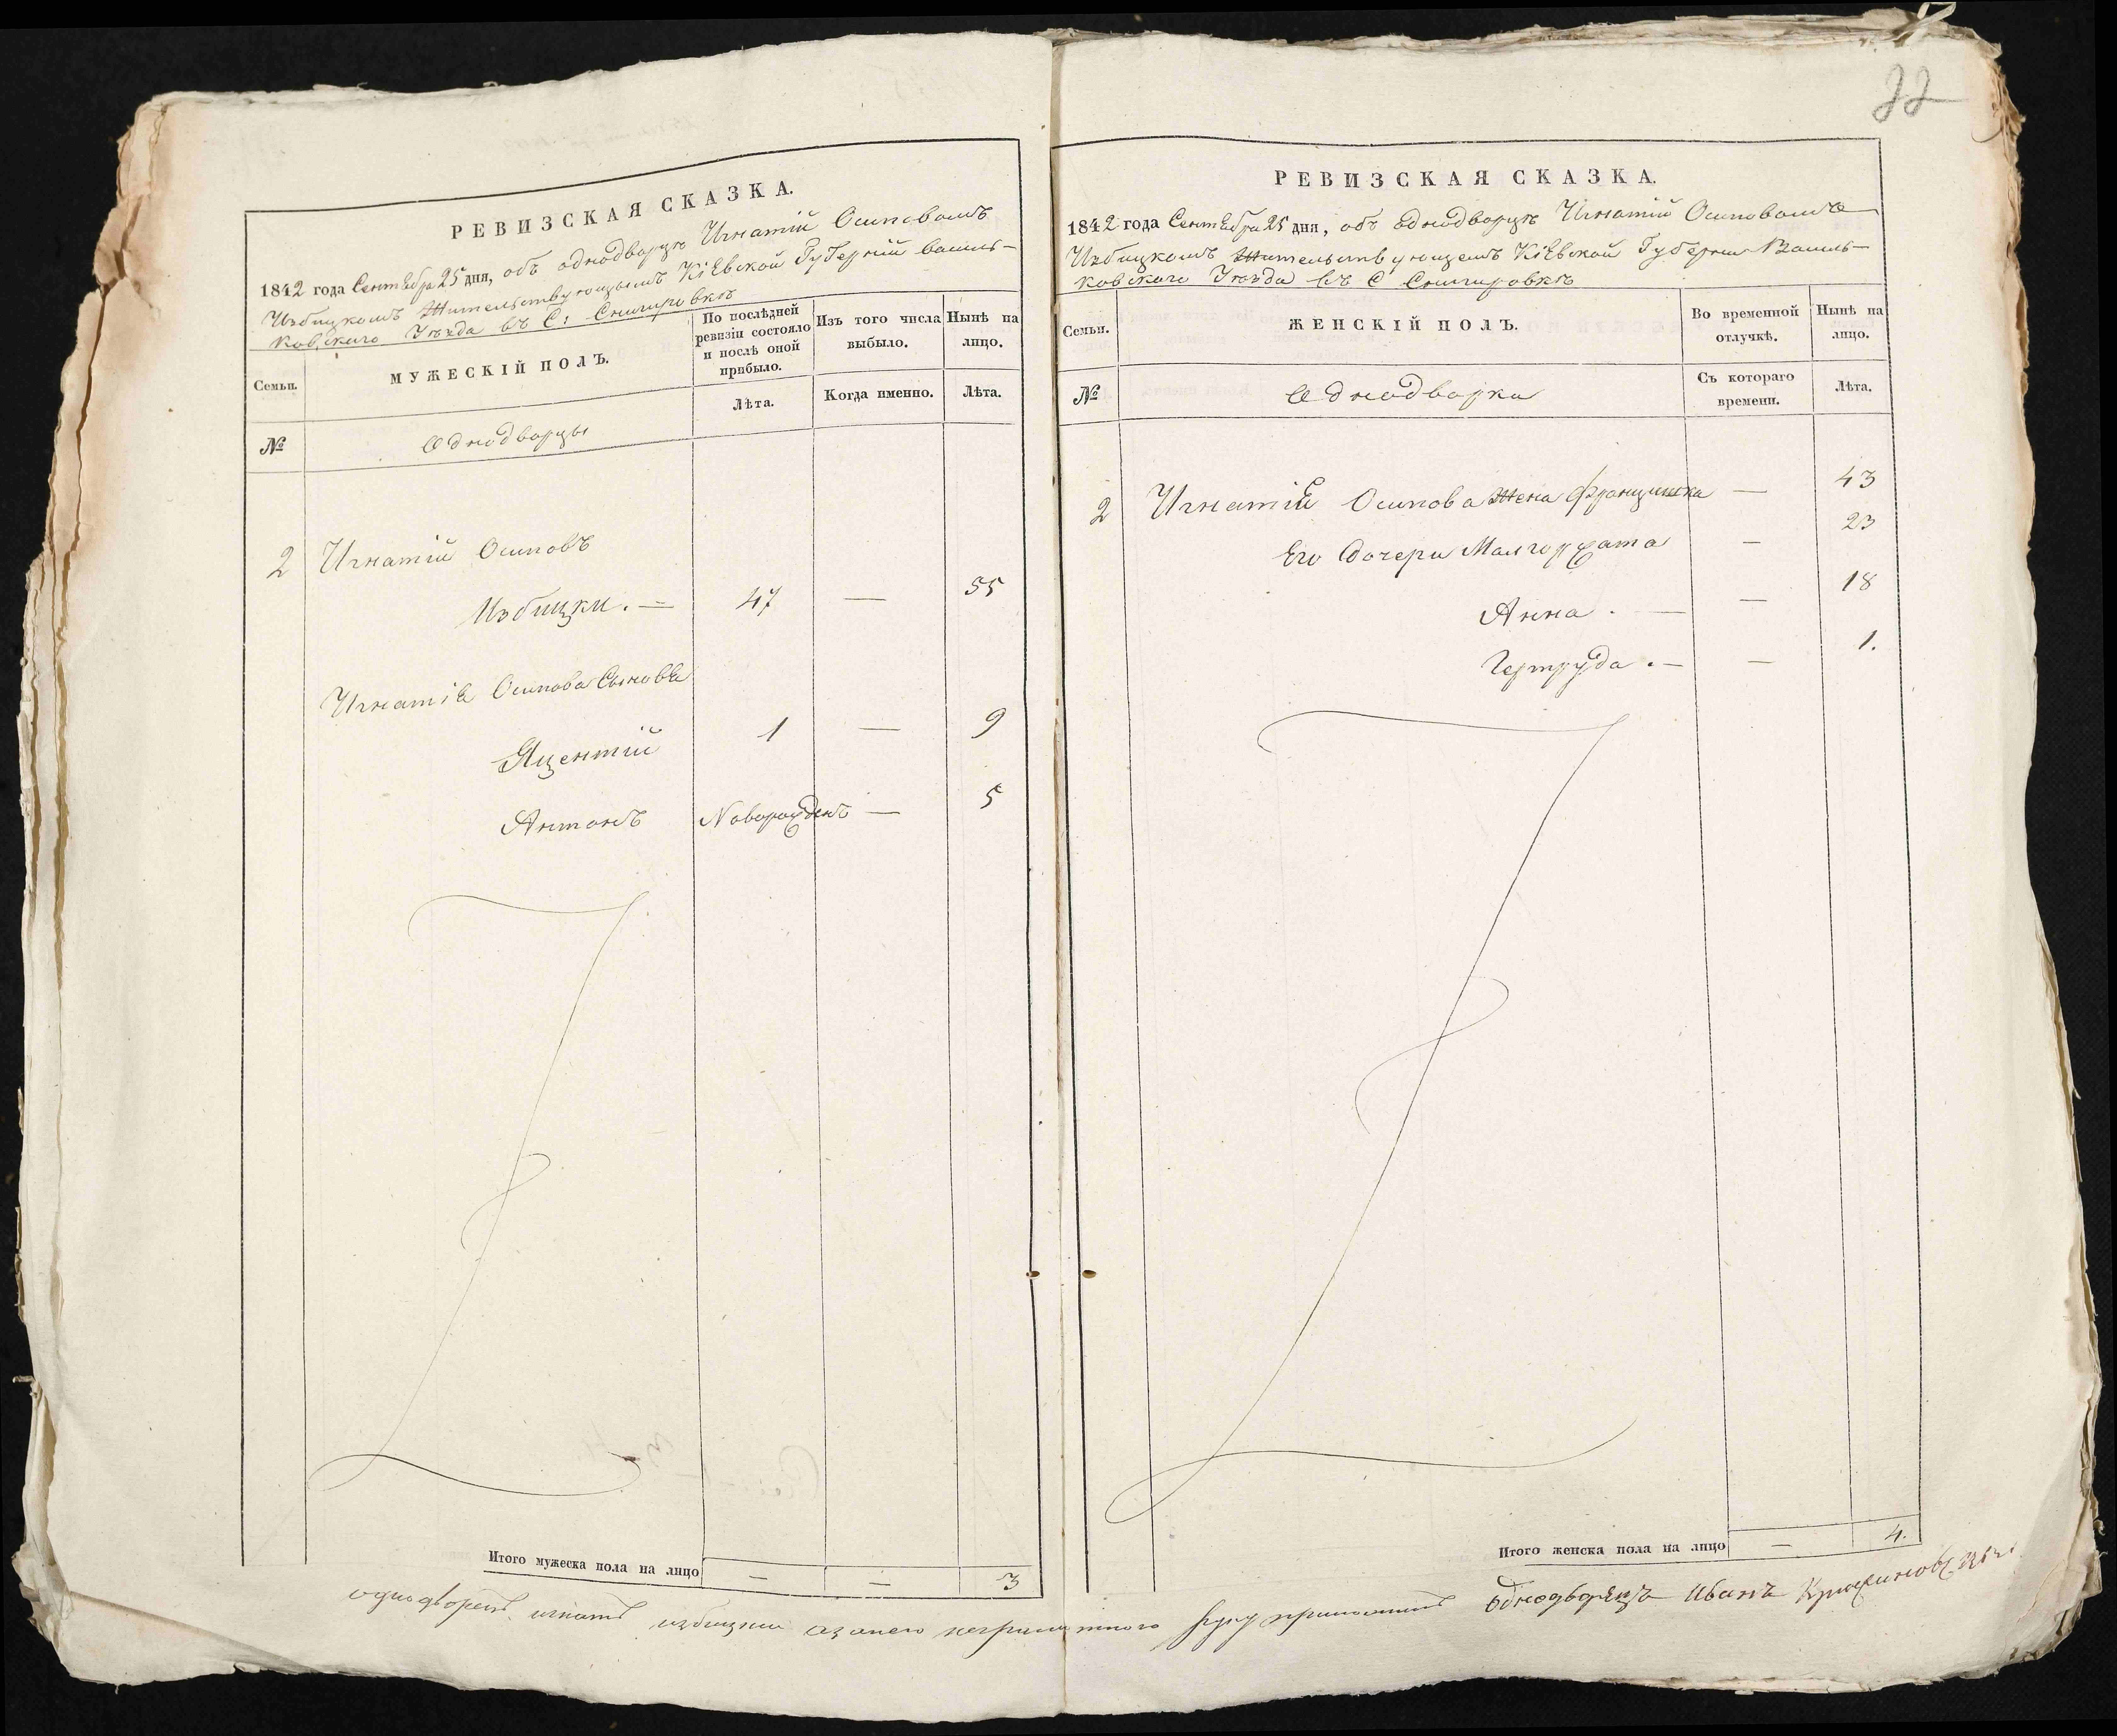 РЕВИЗСКАЯ СКАЗКА.
1842 года Сентебра 25 дня, объ однодворцѣ Игнатiй Осиповомъ
Избицкомъ Жительствующымъ Кiевской Губернiй василь-
ковскаго Уѣзда въ С: Снигировкѣ
Семьи.
МУЖЕСКІЙ ПОЛЪ.
По послѣдней ревизіи состояло и послѣ оной прибыло.
Изъ того числа выбыло.
Нынѣ на лицо.
№
Однодворцы
Лѣта.
Когда именно.
Лѣта.
2 Игнатiй Осиповъ
Избицки . — 47 — 55
Игнатiе Осипова Сыновѣ
Яцентiй 1 — 9
Антонъ Новорожденъ — 5
Итого мужеска пола на лицо — — 3
22
РЕВИЗСКАЯ СКАЗКА.
1842 года Сентебра 25 дня, объ однодворцѣ Игнатiй Осиповомъ
Избицкомъ Жительствующемъ Кiевской Губернiи Василь-
ковскаго Уѣзда въ С Снигировкѣ
Семьи.
ЖЕНСКІЙ ПОЛЪ.
Во временной отлучкѣ.
Нынѣ на лицо.
№
Однодворки
Съ котораго времени.
Лѣта.
2 Игнатiе Осипова Жена Францишка — 43
Его Дочери Малгоржата — 23
Анна . — — 18
Гертруда . — — 1.
Итого женска пола на лицо — 4.
однодворецъ игнатъ избицки азанего неграмотного руку приложилъ однодворецъ Иванъ